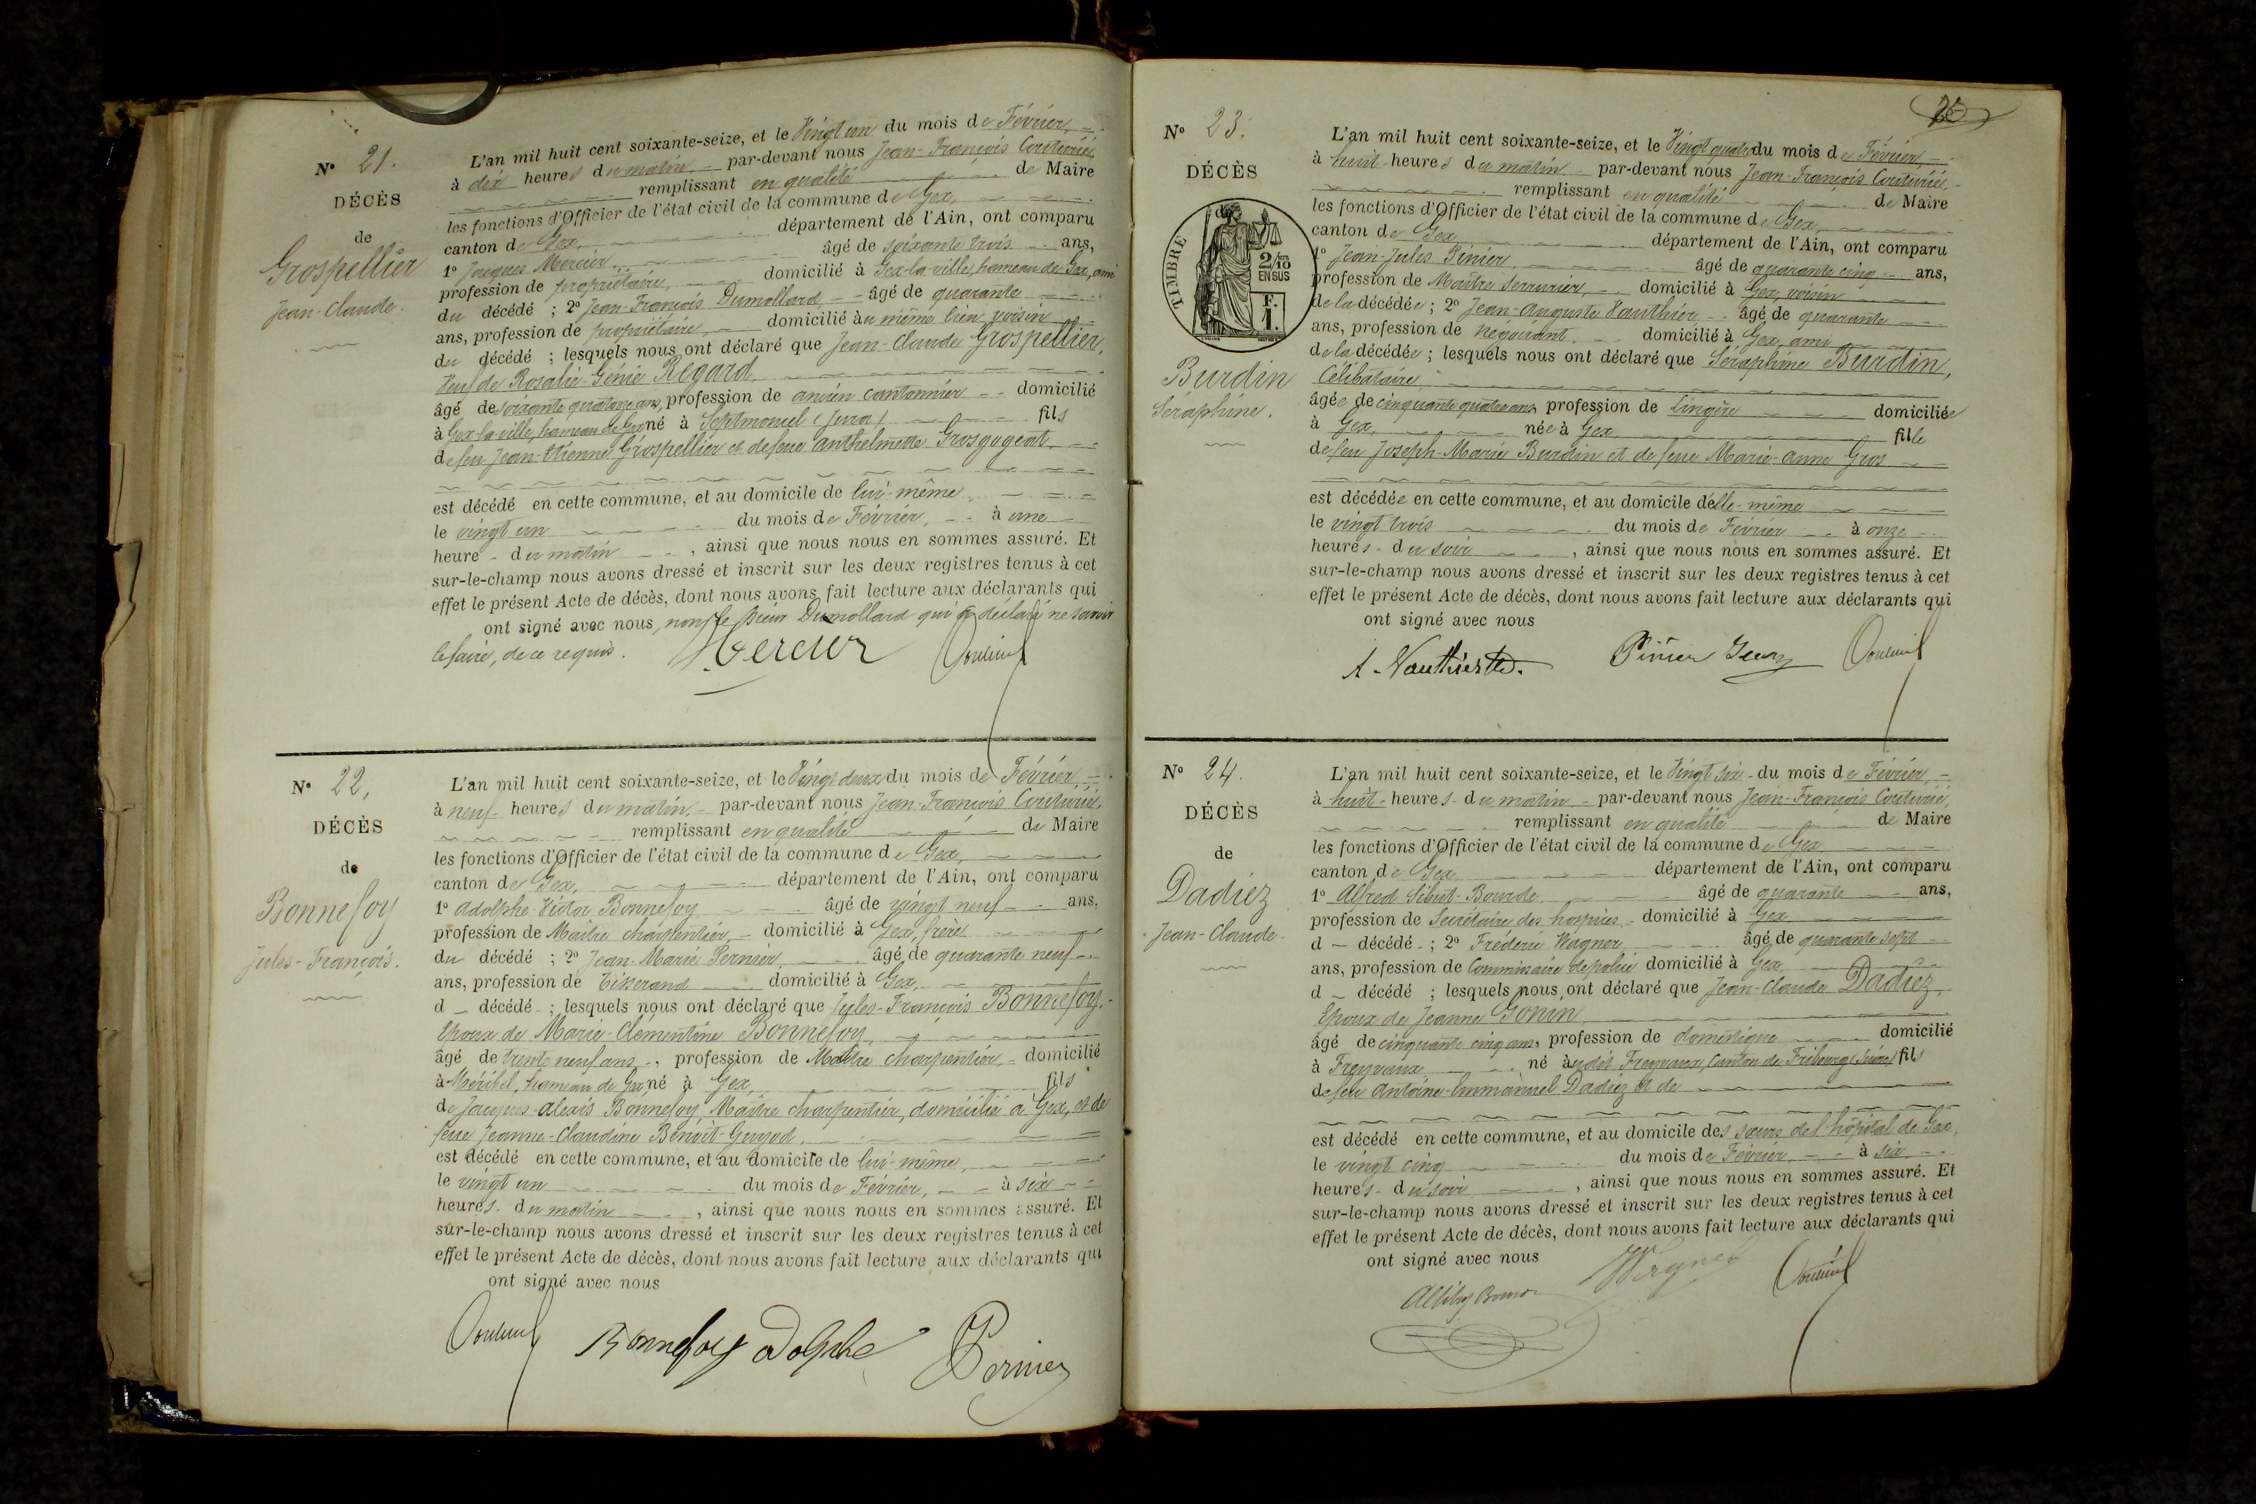 N° 21.
DÉCÈS
de
Grospellier
Jean-Claude.
L'an mil huit cent soixante-seize, et le Vingt un du mois de Février,
à dix heures du matin par-devant nous Jean-François Couturier,
remplissant en qualité de Maire
les fonctions d'Officier de l'état civil de la commune de Gex,
canton de Gex, département de l'Ain, ont comparu
1° Jacques Mercier, âgé de soixante trois ans,
profession de propriétaire, domicilié à Gex-la-ville, hameau de Gex, ami
du décédé ; 2° Jean-François Dumollard âgé de quarante
ans, profession de propriétaire, domicilié au même lieu, voisin
du décédé ; lesquels nous ont déclaré que Jean-Claude Grospellier,
Veuf de Rosalie-Génie Regard
âgé de soixante quatorze ans, profession de ancien cantonnier domicilié
à Gex-la-ville, hameau de Gex né à Septmoncel (Jura) fils
de feu Jean-Etienne Grospellier et de feue Anthelmette Grosgurgeat,
est décédé en cette commune, et au domicile de lui-même,
le vingt un du mois de Février, à une
heure du matin , ainsi que nous nous en sommes assuré. Et
sur-le-champ nous avons dressé et inscrit sur les deux registres tenus à cet
effet le présent Acte de décès, dont nous avons fait lecture aux déclarants qui
ont signé avec nous, non le sieur Dumollard qui a déclaré ne savoir
le faire, de ce requis. Mercier
N° 22,
DÉCÈS
de
Bonnefoy
Jules-François.
L'an mil huit cent soixante-seize, et le Vingt deux du mois de Février,
à neuf heures du matin, par-devant nous Jean-François Couturier,
remplissant en qualité de Maire
les fonctions d'Officier de l'état civil de la commune de Gex,
canton de Gex, département de l'Ain, ont comparu
1° Adolphe-Victor Bonnefoy âgé de vingt neuf ans,
profession de Maître charpentier, domicilié à Gex, frère
du décédé ; 2° Jean-Marie Pernier, âgé de quarante neuf
ans, profession de Tisserand domicilié à Gex,
d décédé ; lesquels nous ont déclaré que Jules-François Bonnefoy.
Epoux de Marie-Clémentine Bonnefoy,
âgé de trente neuf ans, profession de Maître charpentier domicilié
à hameau de Gex né à Gex fils
de Jacques-Alexis Bonnefoy, Maître charpentier, domicilié à Gex, et de
feue Jeanne-Claudine Benoit-Guyod.
est décédé en cette commune, et au domicile de lui-même,
le vingt un du mois de Février, à six
heures du matin , ainsi que nous nous en sommes assuré. Et
sur-le-champ nous avons dressé et inscrit sur les deux registres tenus à cet
effet le présent Acte de décès, dont nous avons fait lecture aux déclarants qui
ont signé avec nous
Bonnefoy adolphe Pernier
N° 23.
DÉCÈS
de
TIMBRE
2/10
EN SUS
F.
1.
Burdin
Séraphine.
L'an mil huit cent soixante-seize, et le Vingt quatre du mois de Février
à huit heures du matin par-devant nous Jean-François Couturier,
remplissant en qualité de Maire
les fonctions d'Officier de l'état civil de la commune de Gex,
canton de Gex département de l'Ain, ont comparu
1° Jean-Jules Pinier, âgé de quarante cinq ans,
profession de Maître serrurier, domicilié à Gex, voisin
de la décédée ; 2° Jean-Auguste Vauthier âgé de quarante
ans, profession de négociant domicilié à Gex, ami
de la décédée ; lesquels nous ont déclaré que Séraphine Burdin,
Célibataire
âgée de cinquante quatre ans profession de lingère domiciliée
à Gex, née à Gex fille
de feu Joseph-Marie Burdin et de feue Marie-Anne Gros
est décédée en cette commune, et au domicile d'elle-même
le vingt trois du mois de Février à onze
heures du soir , ainsi que nous nous en sommes assuré. Et
sur-le-champ nous avons dressé et inscrit sur les deux registres tenus à cet
effet le présent Acte de décès, dont nous avons fait lecture aux déclarants qui
ont signé avec nous
N° 24.
DÉCÈS
de
Dadiez
Jean-Claude.
L'an mil huit cent soixante-seize, et le Vingt six du mois de Février,
à huit heures du matin par-devant nous Jean-François Couturier,
remplissant en qualité de Maire
les fonctions d'Officier de l'état civil de la commune de Gex
canton de Gex département de l'Ain, ont comparu
1° Alfred Sibut-Bourde âgé de quarante ans,
profession de Secrétaire des hospices domicilié à Gex
d décédé ; 2° Frédéric Wagner âgé de quarante sept
ans, profession de Commissaire de police domicilié à Gex
d décédé ; lesquels nous ont déclaré que Jean-Claude Dadiez,
Epoux de Jeanne Gonin
âgé de cinquante cinq ans, profession de domestique domicilié
à né au dit canton de Fribourg (Suisse) fils
de feu Antoine-Emmanuel Dadiez et de
est décédé en cette commune, et au domicile des sœurs de l'hôpital de Gex,
le vingt cinq du mois de Février, à six
heures du soir , ainsi que nous nous en sommes assuré. Et
sur-le-champ nous avons dressé et inscrit sur les deux registres tenus à cet
effet le présent Acte de décès, dont nous avons fait lecture aux déclarants qui
ont signé avec nous